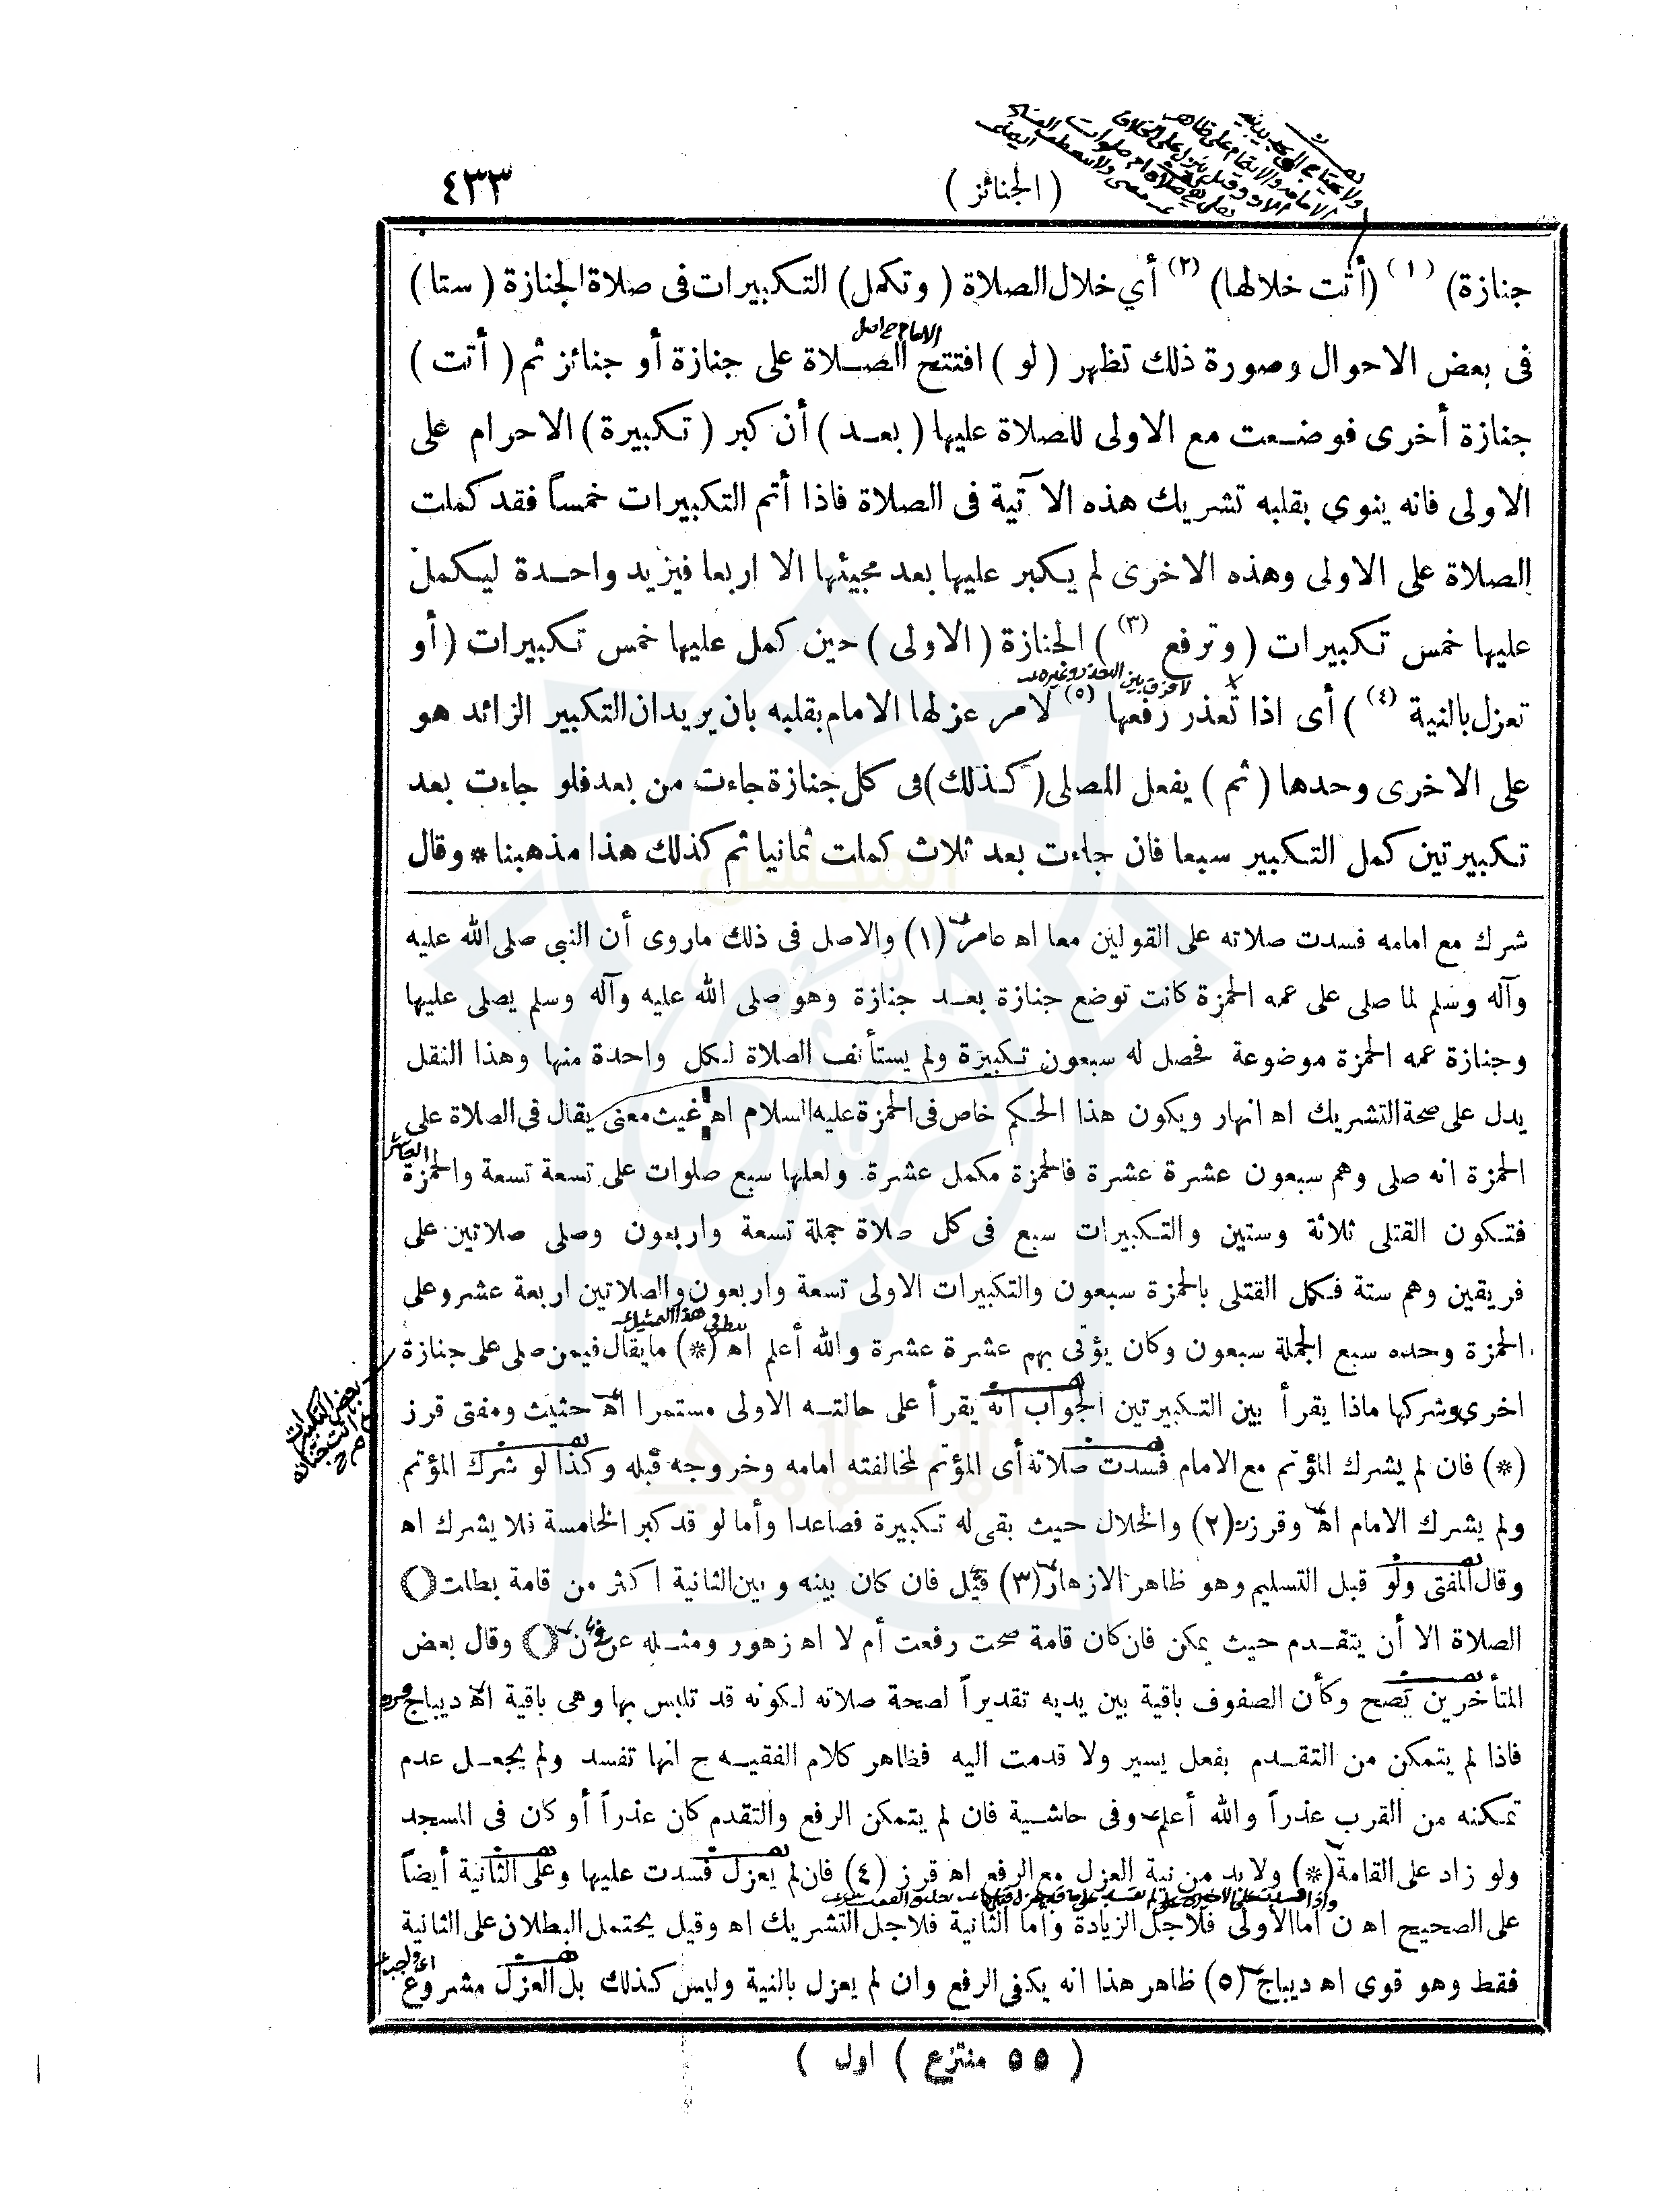 (الجنائز) ٤٣٣
جنازة) (١) (أتت خلالها) (٢) أي خلال الصلاة (وتكمل) التكبيرات فى صلاة الجنازة (ستا)
فى بعض الاحوال وصورة ذلك تظهر (لو) افتتح الصلاة على جنازة أو جنائز ثم (أتت)
جنازة أخرى فوضعت مع الاولى للصلاة عليها (بعد) أن كبر (تكبيرة) الاحرام على
الاولى فانه ينوي بقلبه تشريك هذه الآتية فى الصلاة فاذا أتم التكبيرات خمساً فقد كملت
الصلاة على الاولى وهذه الاخرى لم يكبر عليها بعد مجيئها الا اربعا فيزيد واحدة ليكمل
عليها خمس تكبيرات (وترفع (٣)) الجنازة (الاولى) حين كمل عليها خمس تكبيرات (أو
تعزل بالنية (٤)) أى اذا تعذر رفعها (٥) لامر عزلها الامام بقلبه بان يريدان التكبير الزائد هو
على الاخرى وحدها (ثم) يفعل المصلى (كذلك) فى كل جنازة جاءت من بعد فلو جاءت بعد
تكبيرتين كمل التكبير سبعا فان جاءت بعد ثلاث كملت ثمانيا ثم كذلك هذا مذهبنا * وقال
شرك مع امامه فسدت صلاته على القولين معا اه عامر (١) والاصل فى ذلك ماروى أن النبى صلى الله عليه
وآله وسلم لما صلى على عمه الحمزة كانت توضع جنازة بعد جنازة وهو صلى الله عليه وآله وسلم يصلى عليها
وجنازة عمه الحمزة موضوعة فحصل له سبعون تكبيرة ولم يستأنف الصلاة لكل واحدة منها وهذا النقل
يدل على صحة التشريك اه انهار ويكون هذا الحكم خاص فى الحمزة عليه السلام اه غيث معنى يقال فى الصلاة على
الحمزة انه صلى وهم سبعون عشرة عشرة فالحمزة مكمل عشرة. ولعلها سبع صلوات على تسعة تسعة والحمزة العاشر
فتكون القتلى ثلاثة وستين والتكبيرات سبع فى كل صلاة جملة تسعة واربعون وصلى صلاتين على
فريقين وهم ستة فكمل القتلى بالحمزة سبعون والتكبيرات الاولى تسعة واربعون والصلاتين اربعة عشر وعلى
الحمزة وحده سبع الجملة سبعون وكان يؤتى بهم عشرة عشرة والله أعلم اه (*) ما يقال فيمن صلى على جنازة
اخرى وشركها ماذا يقرأ بين التكبيرتين الجواب انه يقرأ على حالته الاولى مستمرا اه حثيث ومفتى قرز
(*) فان لم يشرك المؤتم مع الامام فسدت صلاته أى المؤتم لمخالفته امامه وخروجه قبله وكذا لو شرك المؤتم
ولم يشرك الامام اه وقرز (٢) والخلال حيث بقى له تكبيرة فصاعدا وأما لو قد كبر الخامسة فلا يشرك اه
وقال المفتى ولو قبل التسليم وهو ظاهر الازهار (٣) قيل فان كان بينه وبين الثانية اكثر من قامة بطلت
الصلاة الا أن يتقدم حيث يمكن فان كان قامة صحت رفعت أم لا اه زهور ومثله عن ن وقال بعض
المتأخرين تصح وكأن الصفوف باقية بين يديه تقديراً لصحة صلاته لكونه قد تلبس بها وهى باقية اه ديباج
فاذا لم يتمكن من التقدم بفعل يسير ولا قدمت اليه فظاهر كلام الفقيه ح انها تفسد ولم يجعل عدم
تمكنه من القرب عذراً والله أعلم وفى حاشية فان لم يتمكن الرفع والتقدم كان عذراً أو كان فى المسجد
ولو زاد على القامة (*) ولا بد من نية العزل مع الرفع اه قرز (٤) فان لم يعزل فسدت عليها وعلى الثانية أيضاً
على الصحيح اه ن أما الأولى فلاجل الزيادة وأما الثانية فلاجل التشريك اه وقيل يحتمل البطلان على الثانية
فقط وهو قوى اه ديباج (٥) ظاهر هذا انه يكفى الرفع وان لم يعزل بالنية وليس كذلك بل العزل مشروع
(٥٥ منتزع) اول)